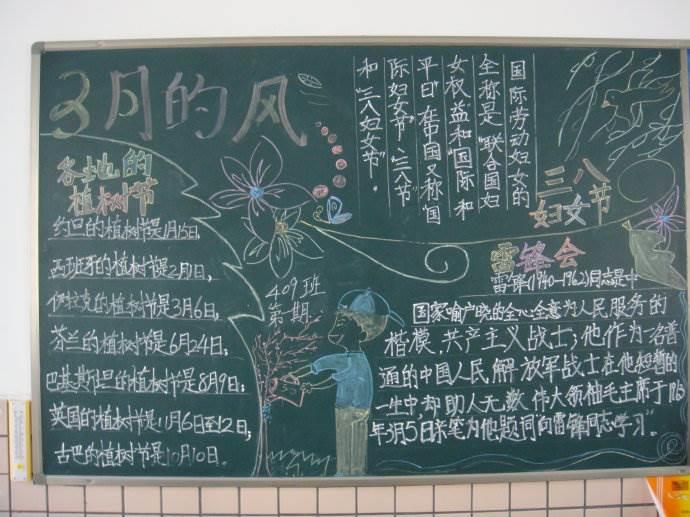 3月的风
各地的
植树节
约旦的植树节是1月15日;
西班牙的植树节是2月1日;
伊拉克的植树节是3月6日;
芬兰的植树节是6月24日;
巴基斯坦的植树节是8月9日;
英国的植树节是11月6日至12日;
古巴的植树节是10月10日。
409班
第一期
国际劳动妇女的
全称是“联合国妇
女权益和“国际和
平日”在中国又称“国
际妇女节”、“三八节”
和“三八妇女节”。
三八
妇女节
雷锋会
雷锋(1940-1962)同志是中
国家喻户晓的全心全意为人民服务的
楷模，共产主义战士；他作为一名普
通的中国人民解放军战士在他短暂的
一生中，却助人无数 伟大领袖毛主席于
年3月5日亲笔为他题词“向雷锋同志学习”。